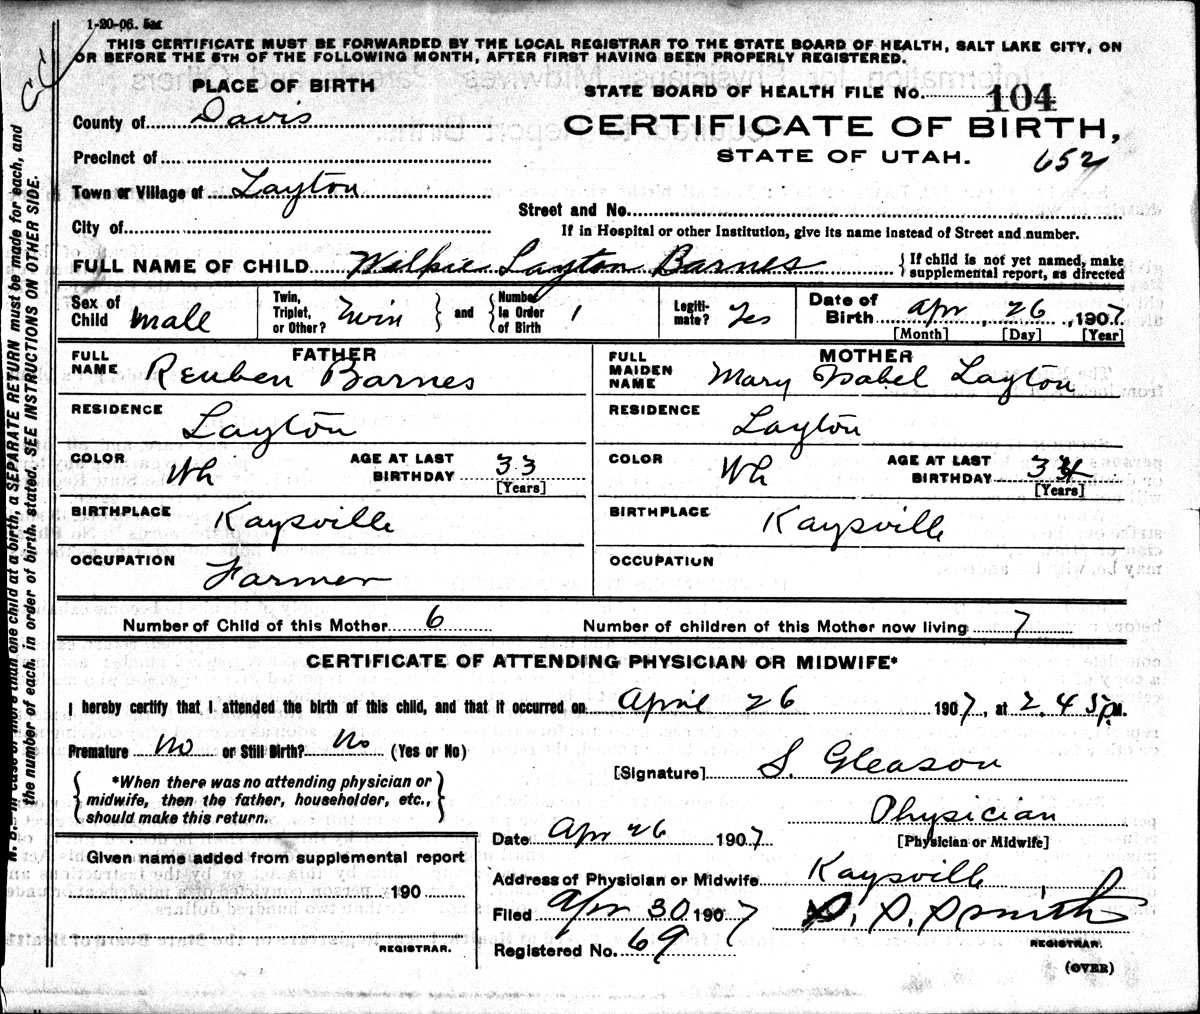 1-20-06. 5M
THIS CERTIFICATE MUST BE FORWARDED BY THE LOCAL REGISTRAR TO THE STATE BOARD OF HEALTH, SALT LAKE CITY, ON
OR BEFORE THE 5TH OF THE FOLLOWING MONTH, AFTER FIRST HAVING BEEN PROPERLY REGISTERED.
PLACE OF BIRTH
STATE BOARD OF HEALTH FILE No. 104
County of Davis
CERTIFICATE OF BIRTH,
Precinct of
STATE OF UTAH. 652
Town or Village of Layton
Street and No.
City of
If in Hospital or other Institution, give its name instead of Street and number.
FULL NAME OF CHILD Wilkie Layton Barnes { If child is not yet named, make
supplemental report, as directed
Sex of Child Male
Twin, Triplet, or Other? Twin } and { Number In Order of Birth 1
Legiti-mate? Yes
Date of Birth Apr, 26, 1907
[Month] [Day] [Year]
FATHER
FULL NAME Reuben Barnes
MOTHER
FULL MAIDEN NAME Mary Isabel Layton
RESIDENCE Layton
RESIDENCE Layton
COLOR Wh AGE AT LAST BIRTHDAY 33 [Years]
COLOR Wh AGE AT LAST BIRTHDAY 34 [Years]
BIRTHPLACE Kaysville
BIRTHPLACE Kaysville
OCCUPATION Farmer
OCCUPATION
Number of Child of this Mother 6
Number of children of this Mother now living 7
CERTIFICATE OF ATTENDING PHYSICIAN OR MIDWIFE*
I hereby certify that I attended the birth of this child, and that it occurred on April 26 1907, at 2.45 P.M.
Premature No or Still Birth? No (Yes or No)
[Signature] S. Gleason
{ *When there was no attending physician or
midwife, then the father, householder, etc.,
should make this return. }
Physician
[Physician or Midwife]
Date Apr 26 1907
Given name added from supplemental report
190
REGISTRAR.
Address of Physician or Midwife Kaysville
Filed Apr 30 1907 Smith
REGISTRAR.
Registered No. 69
(OVER)
N. B.—In case of more than one child at a birth, a SEPARATE RETURN must be made for each, and
the number of each, in order of birth, stated. SEE INSTRUCTIONS ON OTHER SIDE.